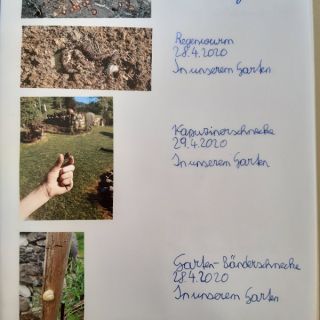 Regenwurm
28.4.2020
In unserem Garten
Kapuzinerschnecke
29.4.2020
In unserem Garten
Garten-Bänderschnecke
28.4.2020
In unserem Garten